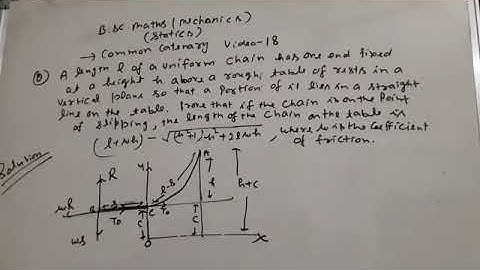 B.SC maths (mechanics)
(Statics)
→ Common Catenary Video-18
Q) A length l of a uniform chain has one end fixed
at a height h above a rough table & rests in a
vertical plane so that a portion of it lies in a straight
line on the table. Prove that if the chain is on the point
of slipping, the length of the chain on the table is
(l+μh) - √(μ²+1)h²+2lμh, where μ is the coefficient
of friction.
Solution
R
Y
A
l-s
h
h+c
μR
s
C
T₀
T₀
ws
C
C
O
X